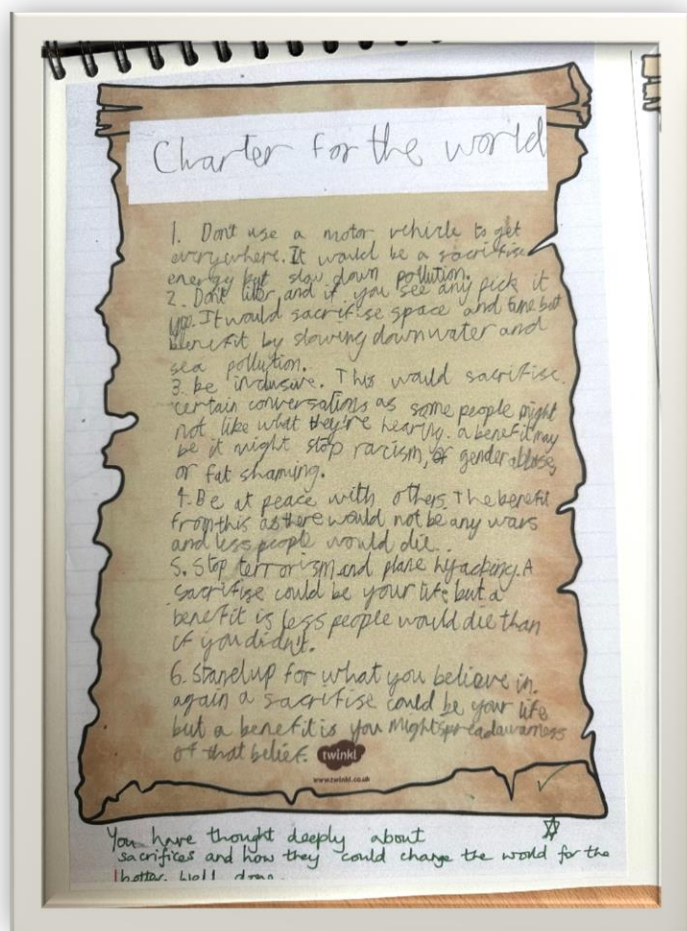 Charter for the world
1. Dont use a motor vehicle to get
everywhere. It would be a sacrifise
energy but slow down pollution.
2. Dont liter, and if you see any pick it
up. It would sacrifise space and time but
benefit by slowing down water and
sea pollution.
3. be inclusive. This would sacrifise
certain conversations as some people might
not like what they're hearing. a benefit may
be it might stop racism, or gender abuse,
or fat shaming.
4. Be at peace with others. The benefit
from this as there would not be any wars
and less people would die.
5. Stop terrorism and plane hyjacking. A
sacrifise could be your life but a
benefit is less people would die than
if you didn't.
6. Stand up for what you believe in.
again a sacrifise could be your life
but a benefit is you might spread awarness
of that belief.
twinkl
www.twinkl.co.uk
You have thought deeply about
sacrifices and how they could change the world for the
better. Well done.